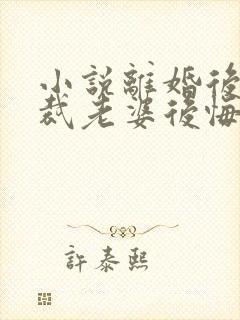 小説離婚後
裁老婆後悔
許泰熙